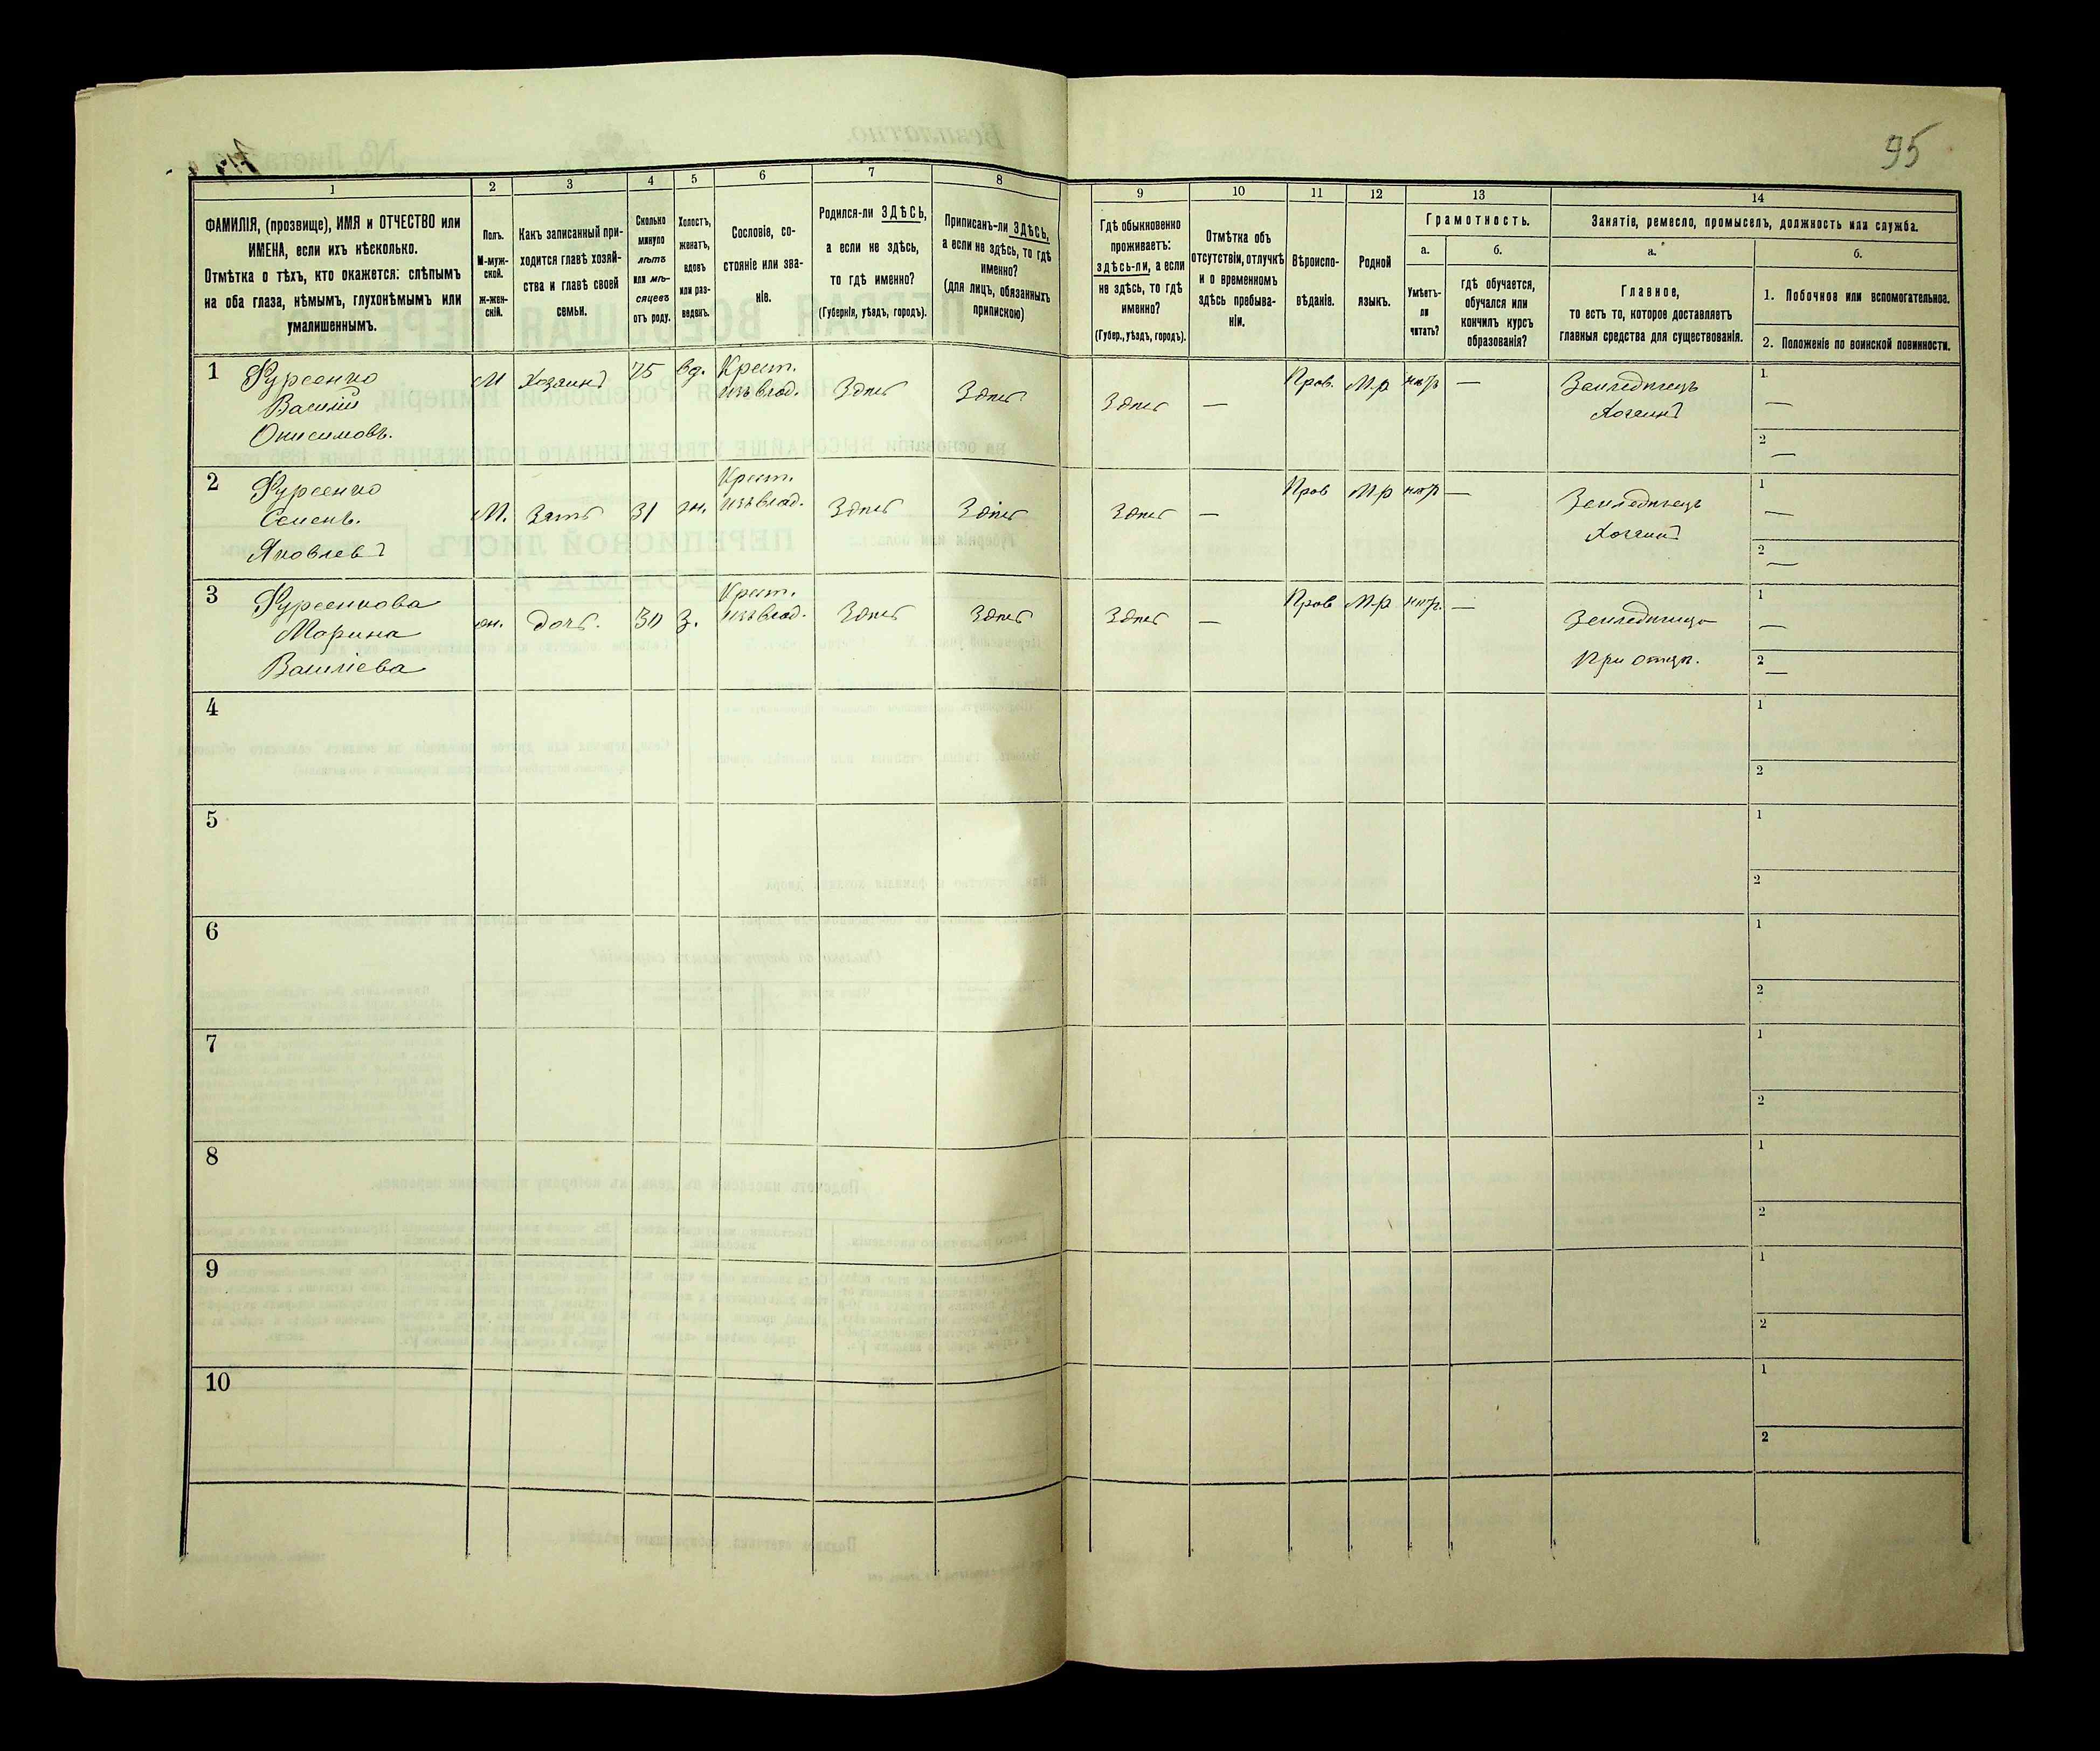 95
1
2
3
4
5
6
7
8
9
10
11
12
13
14
ФАМИЛІЯ, (прозвище), ИМЯ и ОТЧЕСТВО или
ИМЕНА, если ихъ нѣсколько.
Отмѣтка о тѣхъ, кто окажется: слѣпымъ
на оба глаза, нѣмымъ, глухонѣмымъ или
умалишеннымъ.
Полъ.
М-муж-
ской.
ж-жен-
скій.
Какъ записанный при-
ходится главѣ хозяй-
ства и главѣ своей
семьи.
Сколько
минуло
лѣтъ
или мѣ-
сяцевъ
отъ роду.
Холостъ,
женатъ,
вдовъ
или раз-
веденъ.
Сословіе, со-
стояніе или зва-
ніе.
Родился-ли ЗДѢСЬ,
а если не здѣсь,
то гдѣ именно?
(Губернія, уѣздъ, городъ).
Приписанъ-ли ЗДѢСЬ,
а если не здѣсь, то гдѣ
именно?
(для лицъ, обязанныхъ
припискою)
Гдѣ обыкновенно
проживаетъ:
здѣсь-ли, а если
не здѣсь, то гдѣ
именно?
(Губер., уѣздъ, городъ).
Отмѣтка объ
отсутствіи, отлучкѣ
и о временномъ
здѣсь пребыва-
ніи.
Вѣроиспо-
вѣданіе.
Родной
языкъ.
Грамотность.
а.
Умѣетъ-
ли
читать?
б.
гдѣ обучается,
обучался или
кончилъ курсъ
образованія?
Занятія, ремесло, промыселъ, должность или служба.
а.
Главное,
то есть то, которое доставляетъ
главныя средства для существованія.
б.
1. Побочное или вспомогательное.
2. Положеніе по воинской повинности.
1 Фурсенко
Василій
Онисимовъ.
М Хозяинъ 75 вд. Крест.
изъ влад. Здѣсь Здѣсь Здѣсь — Прав. М-р нѣтъ —
Земледѣлецъ
Хозяинъ
1
—
2
—
2 Фурсенко
Семенъ.
Яковлевъ
М. Зять 31 ж. Крест.
изъ влад. Здѣсь Здѣсь Здѣсь — Прав М-р нѣтъ —
Земледѣлецъ
Хозяинъ
1
—
2
—
3 Фурсенкова
Марина
Василіева
ж. дочь. 30 З. Крест.
изъ влад. Здѣсь Здѣсь Здѣсь — Прав М-р нѣтъ. —
Земледѣлица
При отцѣ.
1
—
2
—
4
1
2
5
1
2
6
1
2
7
1
2
8
1
2
9
1
2
10
1
2